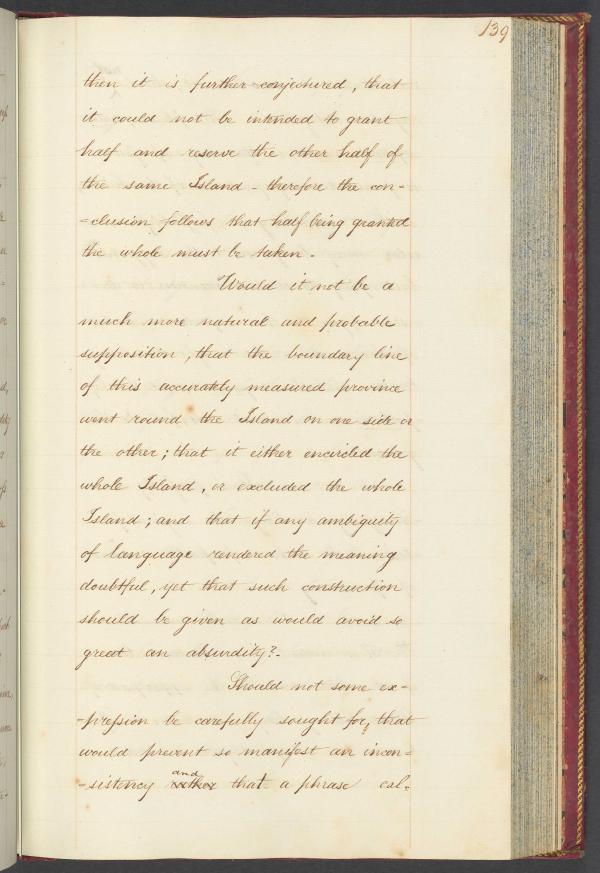 139
then it is further conjectured, that
it could not be intended to grant
half and reserve the other half of
the same Island - therefore the con-
-clusion follows that half being granted
the whole must be taken.
Would it not be a
much more natural and probable
supposition, that the boundary line
of this accurately measured province
went round the Island on one side or
the other; that it either encircled the
whole Island, or excluded the whole
Island; and that if any ambiguity
of language rendered the meaning
doubtful, yet that such construction
should be given as would avoid so
great an absurdity?.
Should not some ex-
-pression be carefully sought for, that
would prevent so manifest an incon=
-sistency and that a phrase cal-